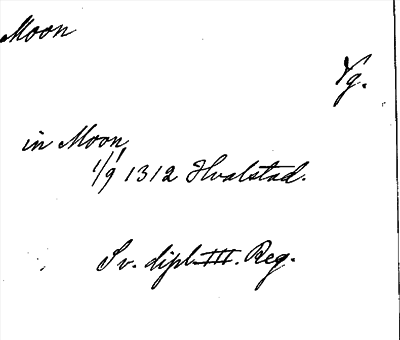 Moon
Vg.
in Moon,
1/9 1312 Hvalstad.
Sv. dipl. III. Reg.